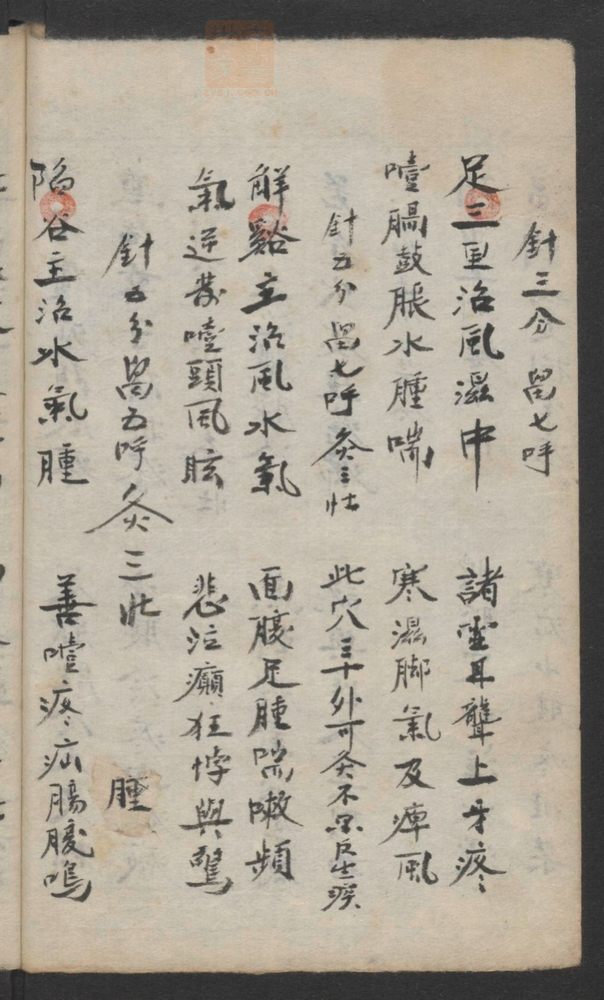 針三分畱七呼
足三里治風濕中 諸虛耳聾上牙疼
噎膈鼓脹水腫喘 寒濕脚氣及痺風
針五分畱七呼灸三壯 此穴三十外可灸不尔反生疾
觧谿主治風水氣 面腹足腫喘嗽頻
氣逆發噎頭風眩 悲泣癲狂悸與驚
針五分畱五呼灸三壯 腫
陷谷主治水氣腫 善噫疼疝腸腹鳴